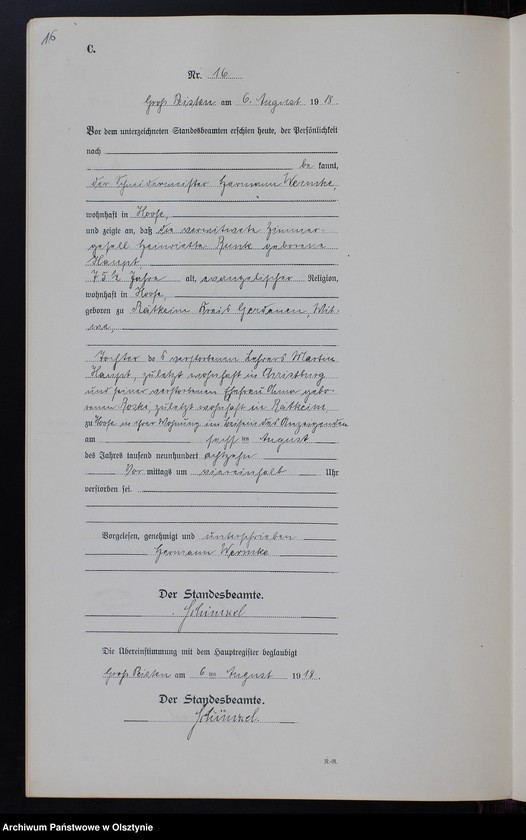 16
C.
Nr. 16
Groß am 6. August 1918.
Vor dem unterzeichneten Standesbeamten erschien heute, der Persönlichkeit
nach
be kannt,
der Schneidermeister Hermann Wermke,
wohnhaft in
und zeigte an, daß die verwitwete Zimmer-
gesell Henriette geborene
Haupt,
75 ½ Jahre alt, evangelischer Religion,
wohnhaft in
geboren zu Kreis Gerdauen, Wit-
we,
Tochter des verstorbenen Lehrers Martin
Haupt, zuletzt wohnhaft in
und seiner verstorbenen Ehefrau Anna gebo-
renen zuletzt wohnhaft in
zu in ihrer Wohnung im Beisein des Anzeigenden
am sechsten August
des Jahres tausend neunhundert achtzehn
Vor mittags um viereinhalb Uhr
verstorben sei.
Vorgelesen, genehmigt und unterschrieben
Hermann Wermke
Der Standesbeamte.
Schünzel
Die Übereinstimmung mit dem Hauptregister beglaubigt
Groß am 6 ten August 1918.
Der Standesbeamte.
Schünzel.
Archiwum Państwowe w Olsztynie